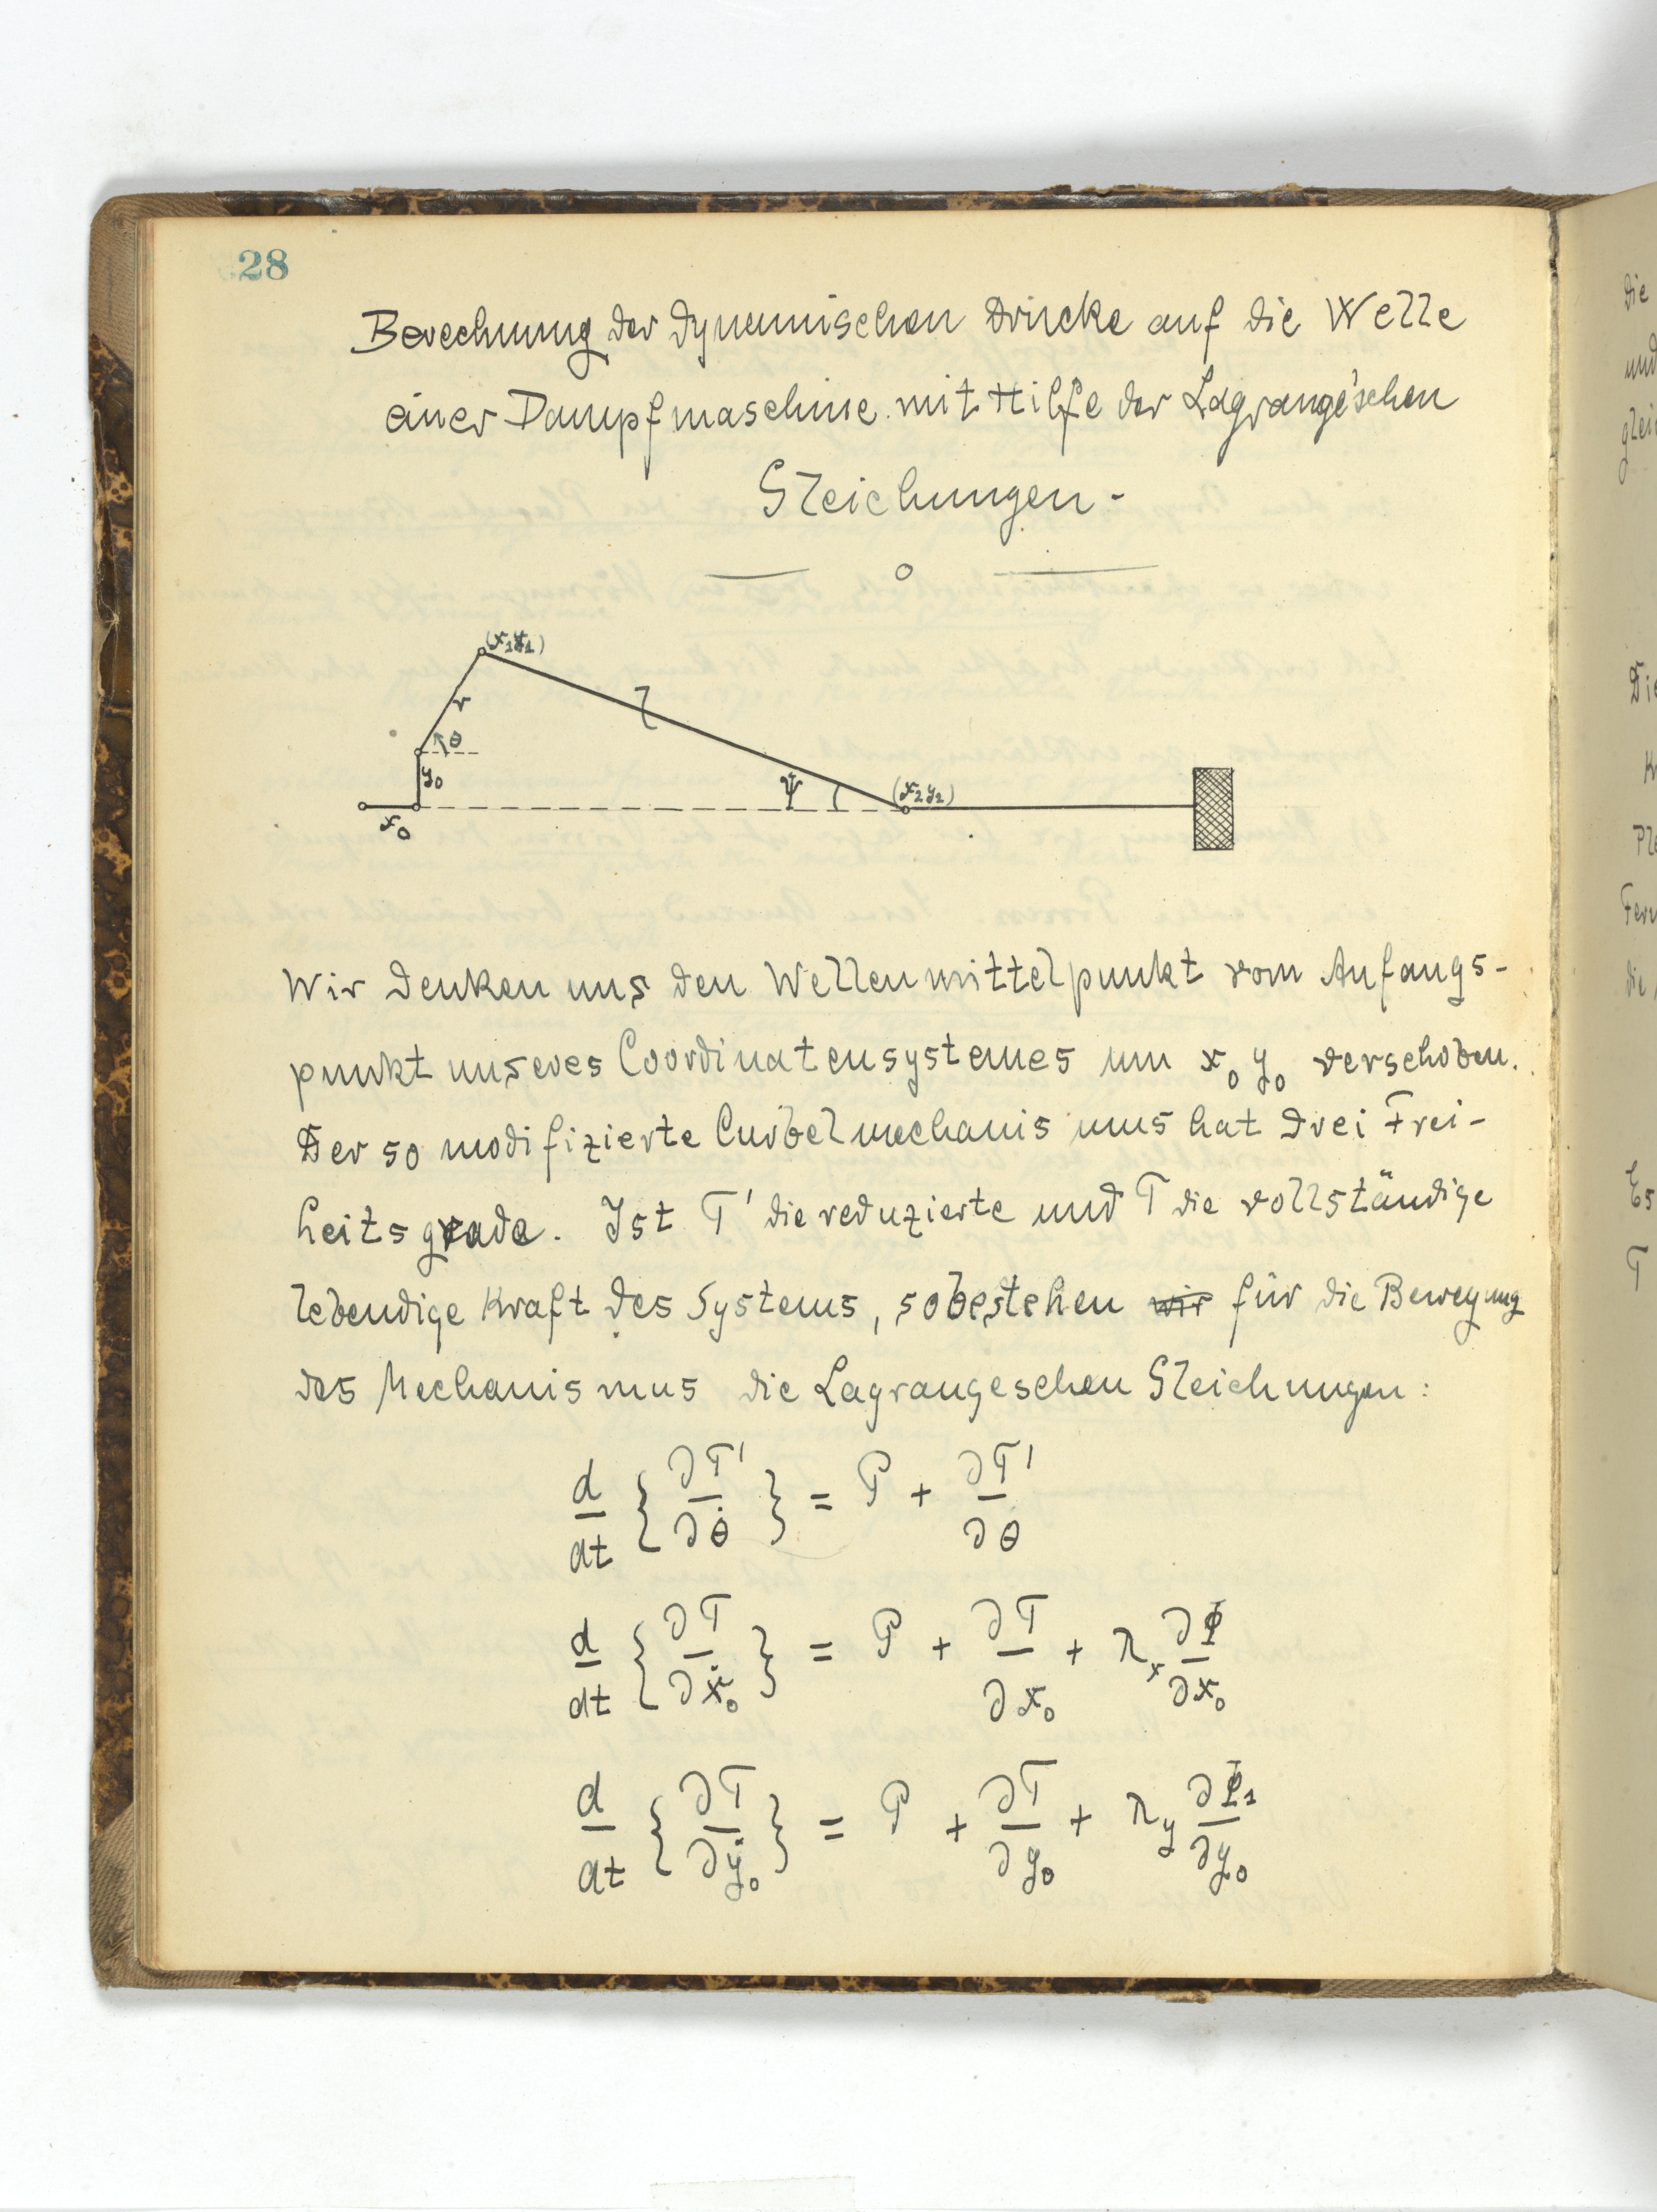 28
Berechnung der dynamischen Drucke auf die Welle
einer Dampfmaschine mit Hilfe der Lagrange'schen
Gleichungen -
(x₁y₁)
r
l
θ
y₀
ψ
(x₂y₂)
x₀
Wir denken uns den Wellenmittelpunkt vom Anfangs-
punkt unseres Coordinatensystemes um x₀ y₀ verschoben.
Der so modifizierte Curbelmechanismus hat drei Frei-
heitsgrade. Ist T' die reduzierte und T die vollständige
lebendige Kraft des Systems, so bestehen wir für die Bewegung
des Mechanismus die Lagrangeschen Gleichungen:
d/dt {∂T'/∂θ̇} = P + ∂T'/∂θ
d/dt {∂T/∂ẋ₀} = P + ∂T/∂x₀ + λₓ ∂Φ/∂x₀
d/dt {∂T/∂ẏ₀} = P + ∂T/∂y₀ + λ_y ∂Φ₁/∂y₀
die
und
Die
Es
T